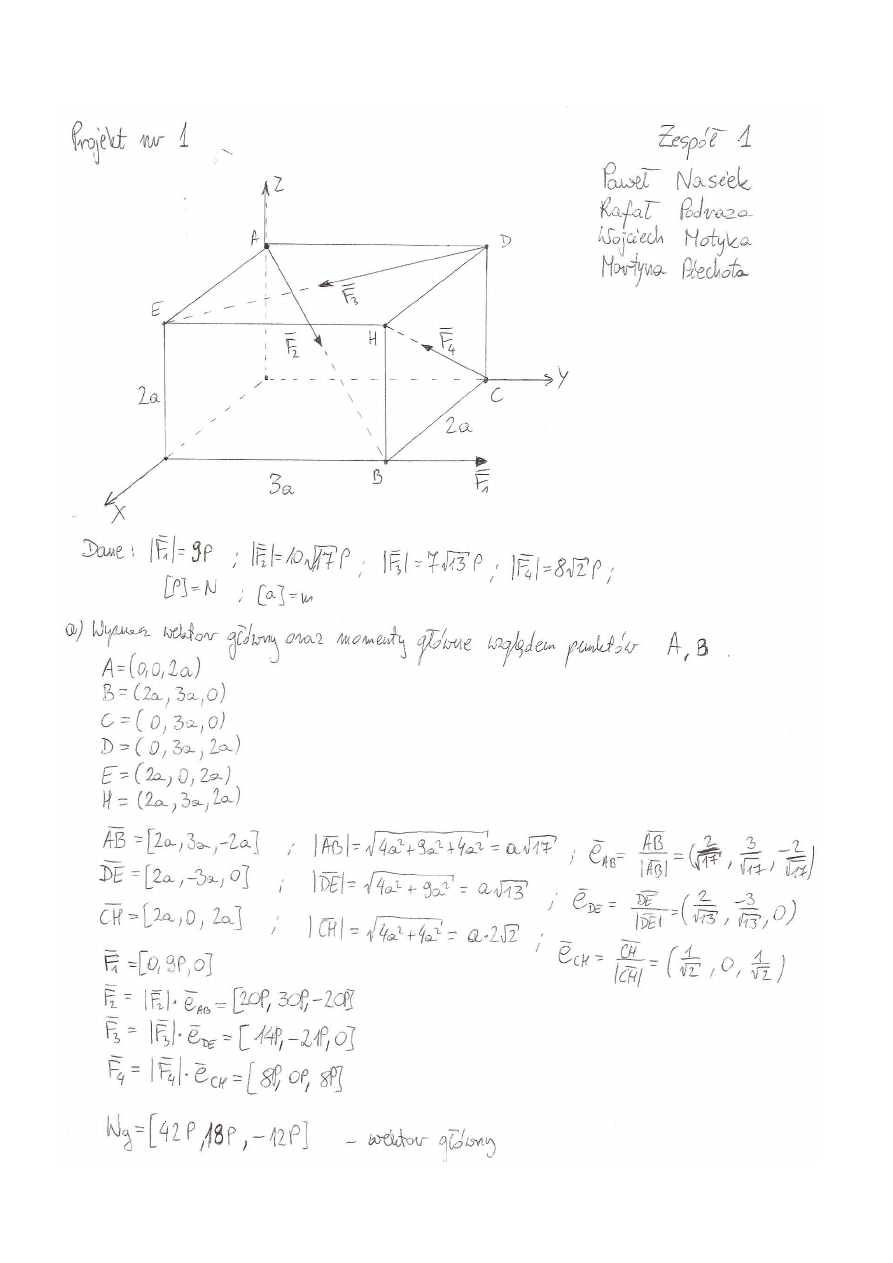 Projekt nr 1
Zespół 1
Paweł Nasiek
Rafał Podraza
Wojciech Motyka
Martyna Piechota
Z
A
D
F̅₃
E
H
F̅₂
F̅₄
Y
C
2a
2a
B
3a
F̅₁
X
Dane: |F̅₁|=9P ; |F̅₂|=10√17 P ; |F̅₃|=7√13 P ; |F̅₄|=8√2 P ;
[P]=N ; [a]=m
a) Wyznacz wektor główny oraz momenty główne względem punktów A, B.
A=(0,0,2a)
B=(2a,3a,0)
C=(0,3a,0)
D=(0,3a,2a)
E=(2a,0,2a)
H=(2a,3a,2a)
A̅B̅=[2a,3a,-2a] ; |A̅B̅|=√(4a²+9a²+4a²)=a√17 ; e̅_AB=A̅B̅/|A̅B̅|=(2/√17, 3/√17, -2/√17)
D̅E̅=[2a,-3a,0] ; |D̅E̅|=√(4a²+9a²)=a√13 ; e̅_DE=D̅E̅/|D̅E̅|=(2/√13, -3/√13, 0)
C̅H̅=[2a,0,2a] ; |C̅H̅|=√(4a²+4a²)=a·2√2 ; e̅_CH=C̅H̅/|C̅H̅|=(1/√2, 0, 1/√2)
F̅₁=[0,9P,0]
F̅₂=|F̅₂|·e̅_AB=[20P,30P,-20P]
F̅₃=|F̅₃|·e̅_DE=[14P,-21P,0]
F̅₄=|F̅₄|·e̅_CH=[8P,0P,8P]
Wg=[42P,18P,-12P] – wektor główny